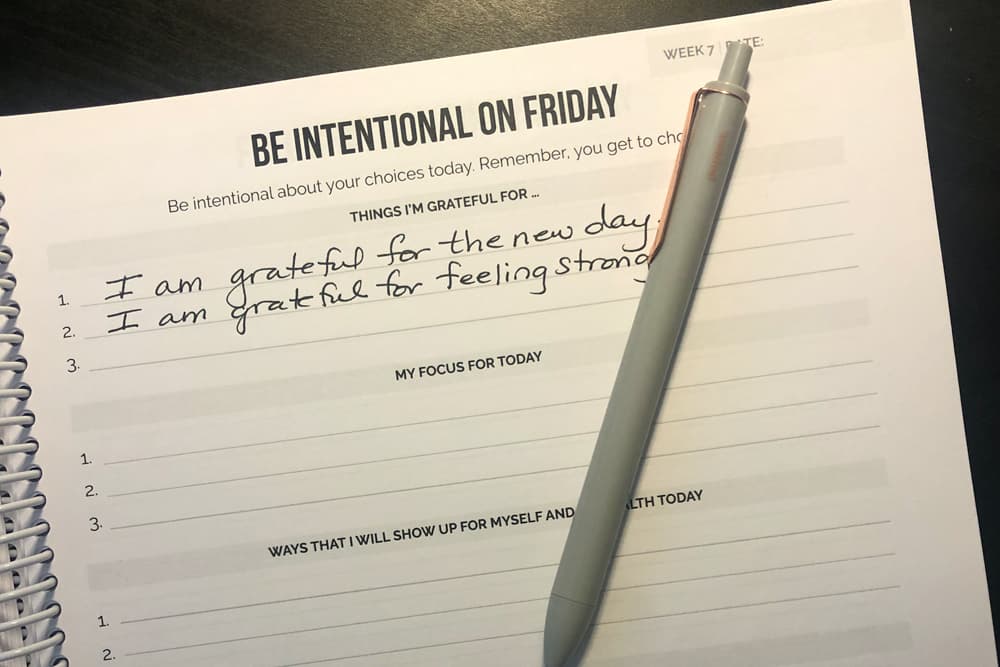 WEEK 7 | DATE:
BE INTENTIONAL ON FRIDAY
Be intentional about your choices today. Remember, you get to
THINGS I'M GRATEFUL FOR ...
1. I am grateful for the new day.
2. I am grateful for feeling strong
3.
MY FOCUS FOR TODAY
1.
2.
3.
WAYS THAT I WILL SHOW UP FOR MYSELF AND TODAY
1.
2.